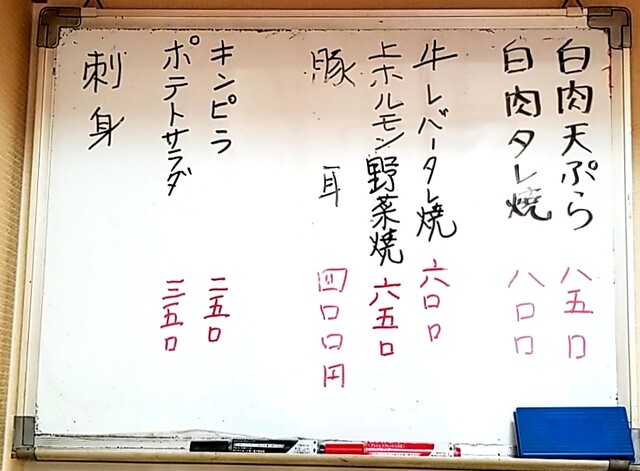 白肉天ぷら 八五〇
白肉タレ焼 八〇〇
牛レバータレ焼 六〇〇
上ホルモン野菜焼 六五〇
豚耳 四〇〇円
キンピラ 二五〇
ポテトサラダ 三五〇
刺身